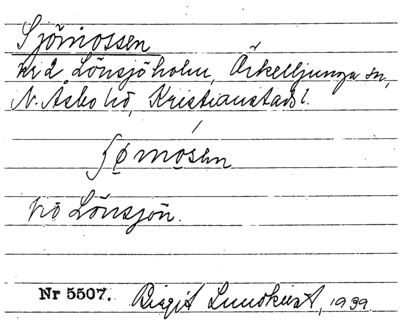 Sjömossen
kr 2 Lönsjöholm, Örkelljunga sn,
N. Åsbo hd, Kristianstads l.
ʃø mosen
hö Lönsjön.
Nr 5507. Birgit Lundkvist, 1939.